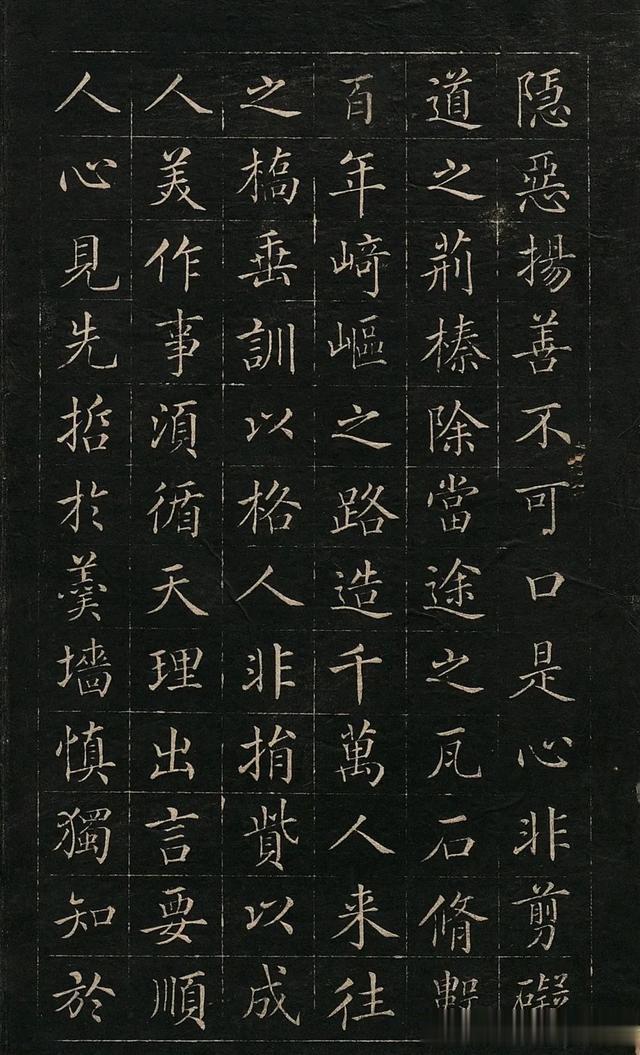 隱惡揚善不可口是心非剪礙
道之荊榛除當途之瓦石脩數
百年崎嶇之路造千萬人来往
之橋垂訓以格人非捐貲以成
人美作事須循天理出言要順
人心見先哲於羹墻慎獨知於